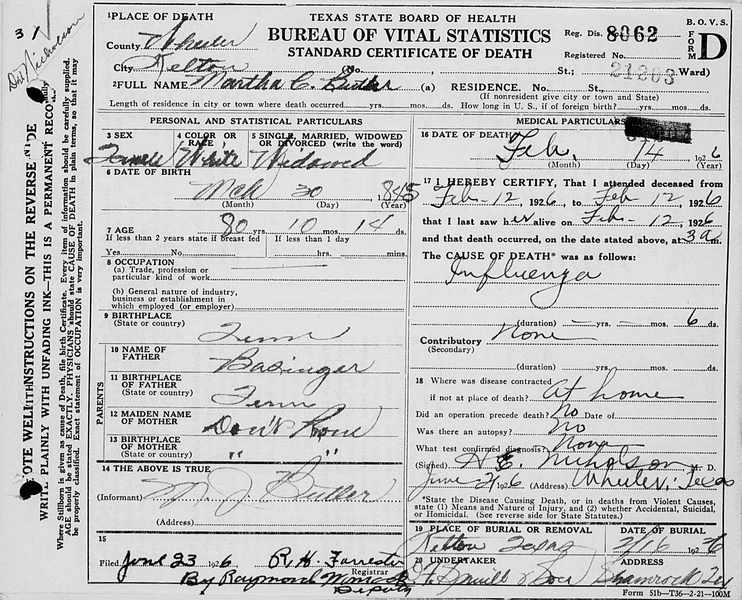 31
Dr. Nicholson
NOTE WELL INSTRUCTIONS ON THE REVERSE SIDE
WRITE PLAINLY WITH UNFADING INK—THIS IS A PERMANENT RECORD
Where Stillborn is given as cause of Death, file birth Certificate. Every item of information should be carefully supplied.
AGE should be stated EXACTLY. PHYSICIANS should state CAUSE OF DEATH in plain terms, so that it may
be properly classified. Exact statement of OCCUPATION is very important.
1 PLACE OF DEATH
TEXAS STATE BOARD OF HEALTH
B. O. V. S.
County Wheeler
BUREAU OF VITAL STATISTICS
Reg. Dis. 8062
FORM D
STANDARD CERTIFICATE OF DEATH
Registered No.
City Kelton (No. St.; 21203 Ward)
2 FULL NAME Martha C. Butler (a) RESIDENCE. No. St.
(If nonresident give city or town and State)
Length of residence in city or town where death occurred yrs. mos. ds. How long in U. S., if of foreign birth? yrs. mos. ds.
PERSONAL AND STATISTICAL PARTICULARS
3 SEX 4 COLOR OR RACE 5 SINGLE, MARRIED, WIDOWED OR DIVORCED (write the word)
Female White Widowed
6 DATE OF BIRTH
Mch 30 1845
(Month) (Day) (Year)
7 AGE 80 yrs. 10 mos. 14 ds.
If less than 2 years state if breast fed If less than 1 day
Yes No hrs. mins.
8 OCCUPATION
(a) Trade, profession or
particular kind of work
(b) General nature of industry,
business or establishment in
which employed (or employer)
9 BIRTHPLACE
(State or country) Tenn
PARENTS
10 NAME OF
FATHER Basinger
11 BIRTHPLACE
OF FATHER
(State or country) Tenn
12 MAIDEN NAME
OF MOTHER Don't Know
13 BIRTHPLACE
OF MOTHER " "
(State or country)
14 THE ABOVE IS TRUE
(Informant) M. J. Butler
(Address)
15
Filed June 23 1926 R. H. Forrester
Registrar
By Raymond
Deputy
MEDICAL PARTICULARS
16 DATE OF DEATH
Feb. 14 1926
(Month) (Day) (Year)
17 I HEREBY CERTIFY, That I attended deceased from
Feb-12, 1926, to Feb 12, 1926
that I last saw her alive on Feb-12, 1926
and that death occurred, on the date stated above, at 3 a.
The CAUSE OF DEATH* was as follows:
Influenza
(duration) yrs. mos. 6 ds.
Contributory None
(Secondary)
(duration) yrs. mos. ds.
18 Where was disease contracted
if not at place of death? At home
Did an operation precede death? No Date of
Was there an autopsy? No
What test confirmed diagnosis? None
(Signed) H.E. Nicholson M. D.
June 21 1926 (Address) Wheeler, Texas
*State the Disease Causing Death, or in deaths from Violent Causes,
state (1) Means and Nature of Injury, and (2) whether Accidental, Suicidal,
or Homicidal. (See reverse side for State Statutes.)
19 PLACE OF BURIAL OR REMOVAL DATE OF BURIAL
Kelton Texas 2/16 1926
20 UNDERTAKER ADDRESS
& Son Shamrock Tex
Form 51b—T36—2-21—100M